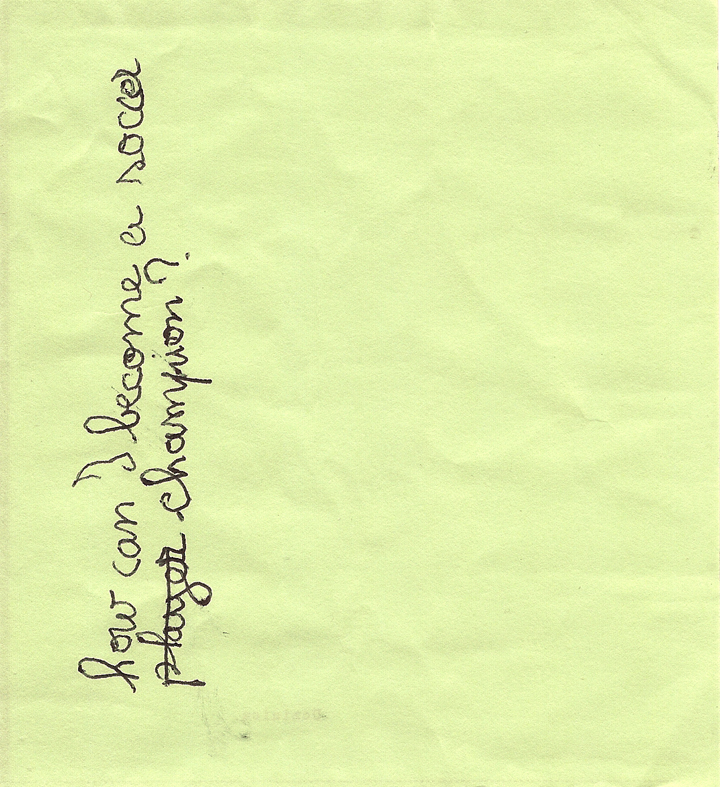 how can I become a soccer
player champion?